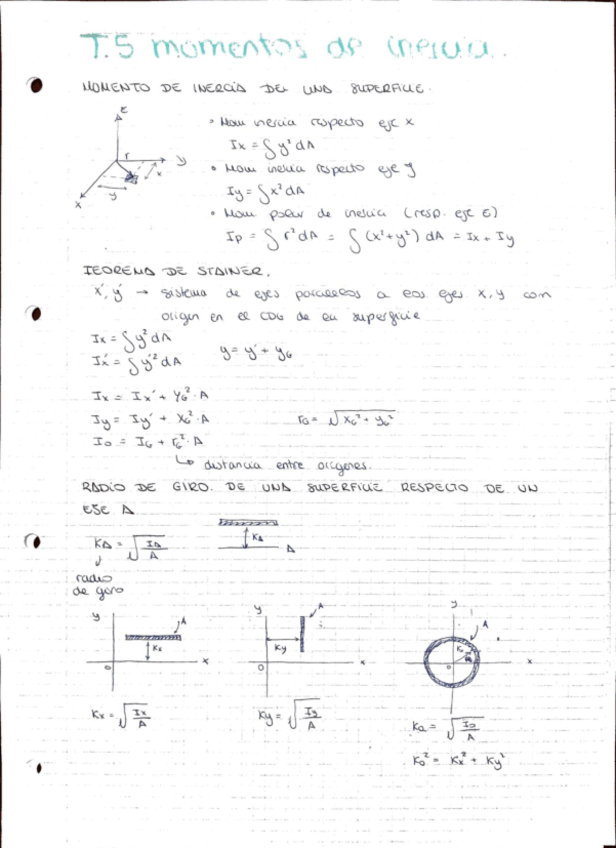 T.5 momentos de inercia.
MOMENTO DE INERCIA DE UNA SUPERFICIE.
z
r
y
x
y
x
• Mom inercia respecto eje x
Ix = ∫ y² dA
• Mom inercia respecto eje y
Iy = ∫ x² dA
• Mom polar de inercia (resp. eje z)
Ip = ∫ r² dA = ∫ (x²+y²) dA = Ix + Iy
TEOREMA DE STAINER.
x', y' → sistema de ejes paralelos a los ejes x, y con
origen en el CDG de la superficie
Ix = ∫ y² dA
Ix' = ∫ y'² dA
y = y' + yG
Ix = Ix' + YG² · A
Iy = Iy' + XG² · A
rG = √(XG² + YG²)
IO = IG + rG² · A
↳ distancia entre orígenes.
RADIO DE GIRO DE UNA SUPERFICIE RESPECTO DE UN
EJE Δ
KΔ = √(IΔ/A)
KΔ
Δ
radio
de giro
y
A
Kx
x
o
y
A
Ky
O
x
y
A
Ko
o
x
Kx = √(Ix/A)
Ky = √(Iy/A)
Ko = √(Io/A)
Ko² = Kx² + Ky²